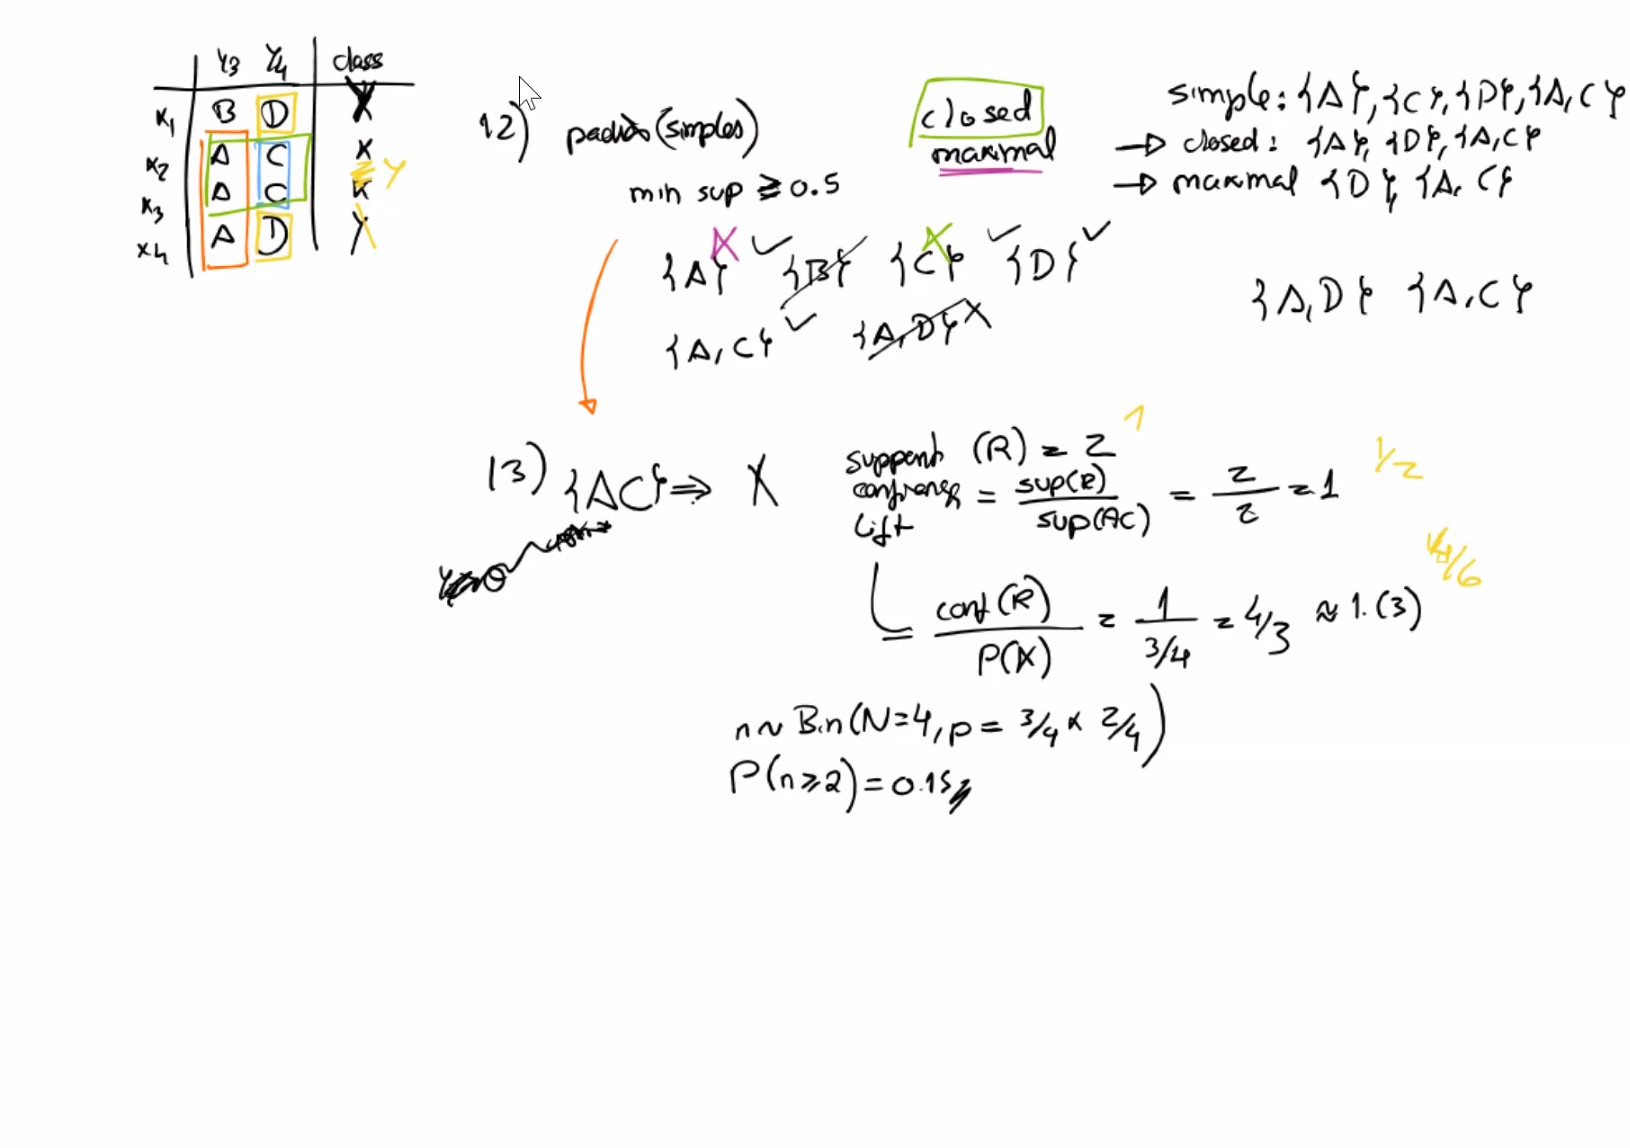 y3 y4 class
x1 B D X
x2 A C X
y
x3 A C X
x4 A D Y
12) padrão (simples)
min sup ≥ 0.5
closed
maximal
simple: {A}, {C}, {D}, {A, C}
→ closed: {A}, {D}, {A, C}
→ maximal {D}, {A, C}
{A} X ✓ {B} {C} X ✓ {D} ✓
{A, C} ✓ {A, D} X
{A, D} {A, C}
13) {AC} ⇒ X
support (R) = 2 1
confiança = sup(R) / sup(AC) = 2/2 = 1 1/2
lift
= conf(R) / P(X) = 1 / 3/4 = 4/3 ≈ 1.(3)
n ~ Bin(N=4, p = 3/4 × 2/4)
P(n ≥ 2) =